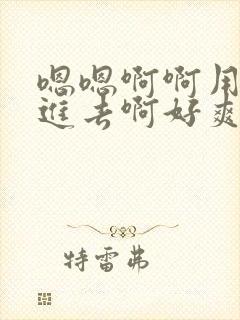 嗯嗯啊啊用
进去啊好爽
特雷弗